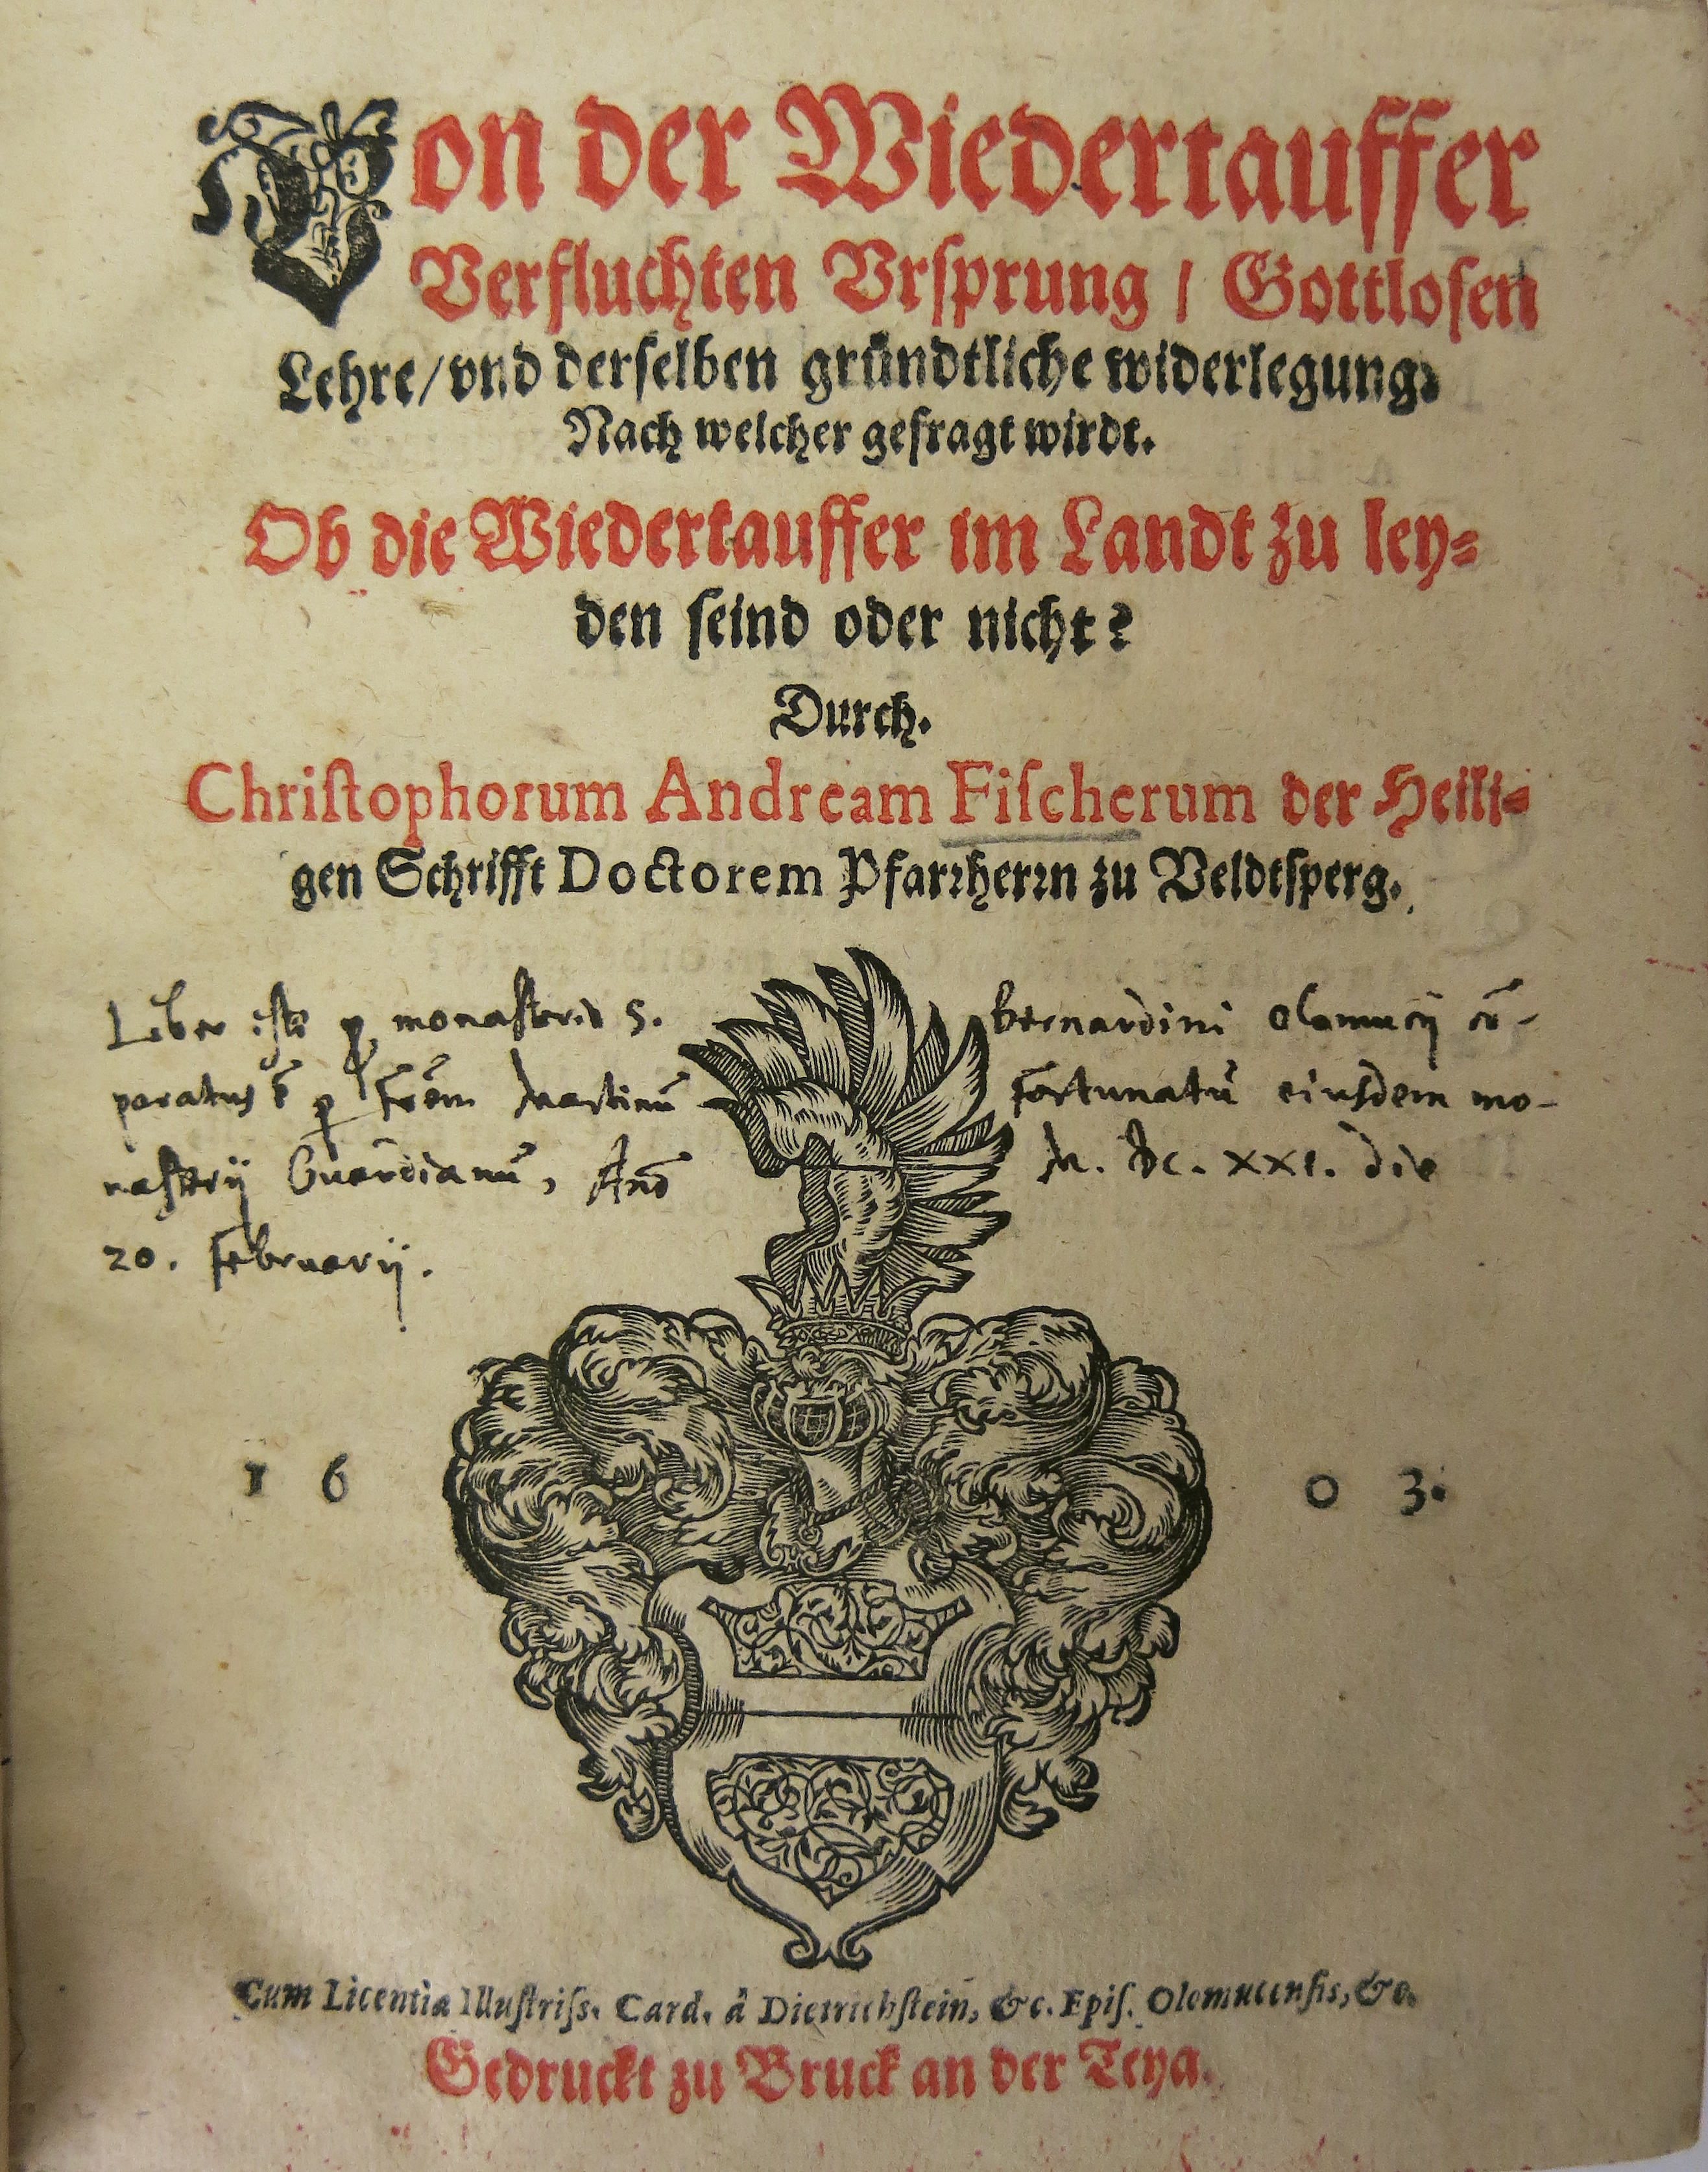 Von der Wiedertauffer
Verfluchten Vrsprung / Gottlosen
Lehre / vnd derselben gründtliche widerlegung.
Nach welcher gefragt wirdt.
Ob die Wiedertauffer im Landt zu ley=
den seind oder nicht?
Durch.
Christophorum Andream Fischerum der Heili=
gen Schrifft Doctorem Pfarrherrn zu Veldtsperg.
Liber iste p monasterio S. bernardini Olomucij cō-
paratus ē p frēm Martinū fortunatū eiusdem mo-
nasterij Guardianū, Anō M. DC. XXI. die
20. februarij.
1 6 0 3.
Cum Licentia Illustriss. Card. â Dietrichstein, &c. Epis. Olomucensis, &c.
Gedruckt zu Bruck an der Teya.